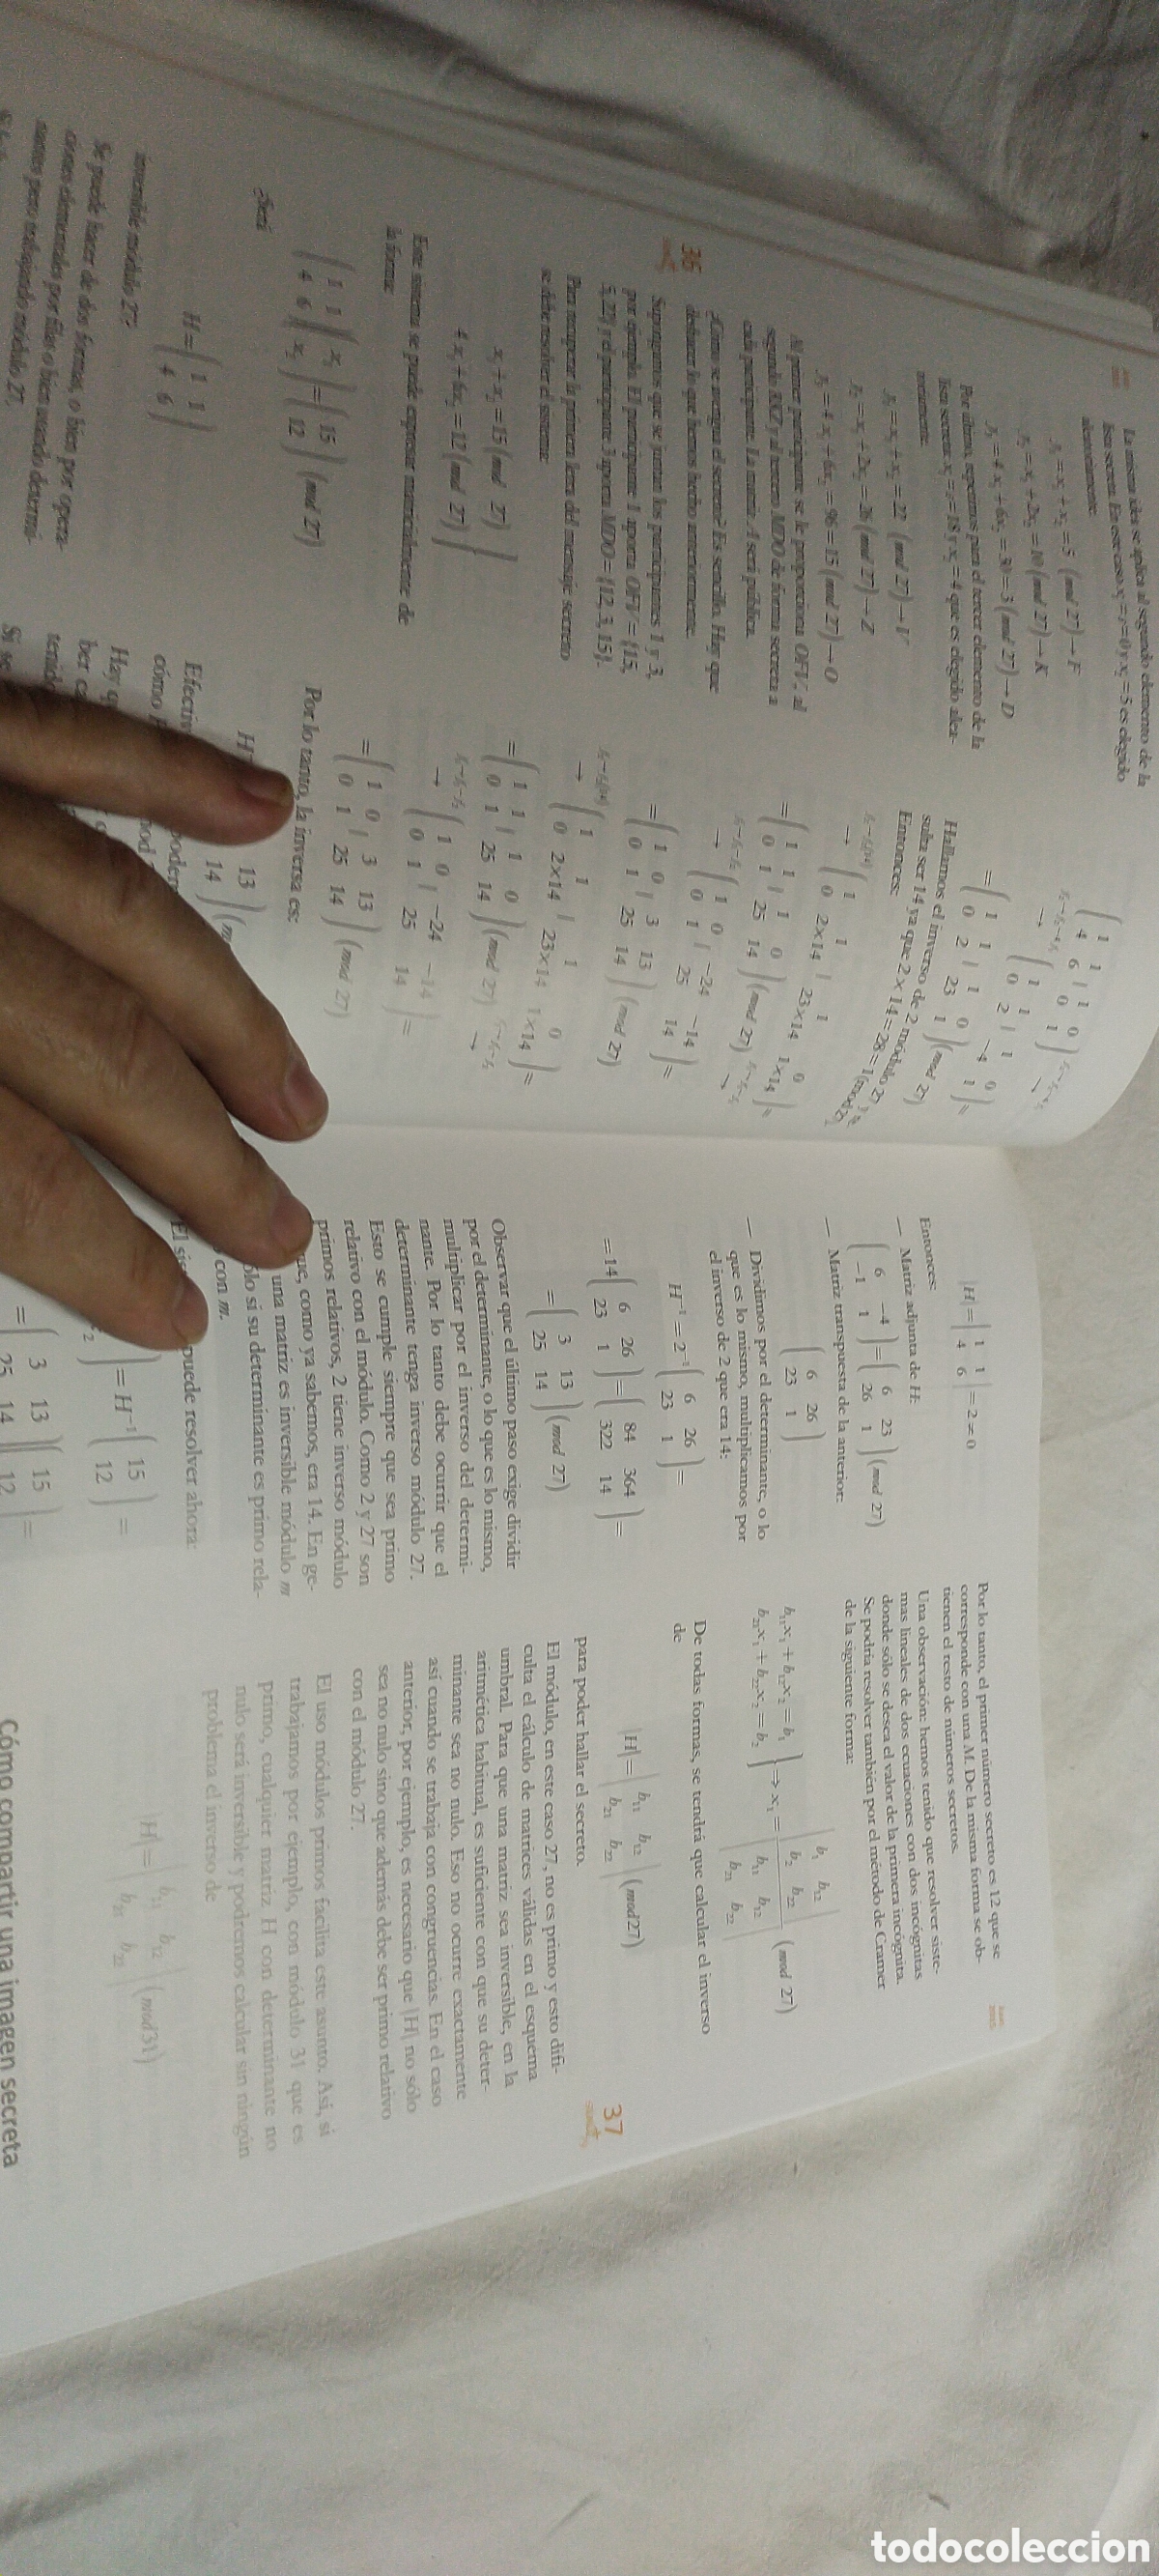 La misma idea se aplica al segundo elemento de la
lista secreta. En este caso x₁=s=0 y x₂=5 es elegido
aleatoriamente:
y₁=x₁+x₂=5 (mod 27)→F
y₂=x₁+2x₂=10 (mod 27)→K
y₃=4x₁+6x₂=30=3 (mod 27)→D
Por último, repetimos para el tercer elemento de la
lista secreta: x₁=s=18 y x₂=4 que es elegido alea-
toriamente:
y₁=x₁+x₂=22 (mod 27)→V
y₂=x₁+2x₂=26 (mod 27)→Z
y₃=4x₁+6x₂=96=15 (mod 27)→O
Al primer participante se le proporciona OFV, al
segundo RKZ y al tercero MDO de forma secreta a
cada participante. La matriz A será pública.
¿Cómo se averigua el secreto? Es sencillo. Hay que
deshacer lo que hemos hecho anteriormente.
36
Supongamos que se juntan los participantes 1 y 3,
por ejemplo. El participante 1 aporta OFV={15,
5,22} y el participante 3 aporta MDO={12,3,15}.
Para recuperar la primera letra del mensaje secreto
se debe resolver el sistema:
x₁+x₂=15 (mod 27)
4x₁+6x₂=12 (mod 27)
Este sistema se puede expresar matricialmente de
la forma:
(1 1 / 4 6)(x₁ / x₂)=(15 / 12) (mod 27)
¿Será
H=(1 1 / 4 6)
invertible módulo 27?
Se puede hacer de dos formas, o bien por opera-
ciones elementales por filas o bien usando determi-
nantes pero trabajando módulo 27.
(1 1 | 1 0 / 4 6 | 0 1) →
→ (1 1 | 1 0 / 0 2 | −4 1)=
=(1 1 | 1 0 / 0 2 | 23 1)(mod 27)
Hallamos el inverso de 2 módulo 27
sulta ser 14 ya que 2×14=28=1(mod 27)
Entonces:
→ (1 1 | 1 0 / 0 2×14 | 23×14 1×14)=
=(1 1 | 1 0 / 0 1 | 25 14)(mod 27) →
→ (1 0 | −24 −14 / 0 1 | 25 14)=
=(1 0 | 3 13 / 0 1 | 25 14) (mod 27)
→ (1 1 | 1 0 / 0 2×14 | 23×14 1×14)=
=(1 1 | 1 0 / 0 1 | 25 14)(mod 27) →
→ (1 0 | −24 −14 / 0 1 | 25 14)=
=(1 0 | 3 13 / 0 1 | 25 14) (mod 27)
Por lo tanto, la inversa es:
13
14
cómo
Hay
|H|=|1 1 / 4 6|=2≠0
Entonces:
— Matriz adjunta de H:
(6 −4 / −1 1)=(6 23 / 26 1)(mod 27)
— Matriz transpuesta de la anterior:
(6 26 / 23 1)
— Dividimos por el determinante, o lo
que es lo mismo, multiplicamos por
el inverso de 2 que era 14:
H⁻¹=2⁻¹(6 26 / 23 1)=
=14(6 26 / 23 1)=(84 364 / 322 14)=
=(3 13 / 25 14)(mod 27)
Observar que el último paso exige dividir
por el determinante, o lo que es lo mismo,
multiplicar por el inverso del determi-
nante. Por lo tanto debe ocurrir que el
determinante tenga inverso módulo 27.
Esto se cumple siempre que sea primo
relativo con el módulo. Como 2 y 27 son
primos relativos, 2 tiene inverso módulo
que, como ya sabemos, era 14. En ge-
una matriz es inversible módulo m
sólo si su determinante es primo rela-
con m.
El puede resolver ahora:
=H⁻¹(15 / 12)=
=(3 13 / 25 14)(15 / 12)=
Por lo tanto, el primer número secreto es 12 que se
corresponde con una M. De la misma forma se ob-
tienen el resto de números secretos.
Una observación: hemos tenido que resolver siste-
mas lineales de dos ecuaciones con dos incógnitas
donde sólo se desea el valor de la primera incógnita.
Se podría resolver también por el método de Cramer
de la siguiente forma:
b₁₁x₁+b₁₂x₂=b₁
b₂₁x₁+b₂₂x₂=b₂ }→x₁=|b₁ b₁₂ / b₂ b₂₂| / |b₁₁ b₁₂ / b₂₁ b₂₂| (mod 27)
De todas formas, se tendrá que calcular el inverso
de
|H|=|b₁₁ b₁₂ / b₂₁ b₂₂|(mod27)
para poder hallar el secreto.
37
El módulo, en este caso 27, no es primo y esto difi-
culta el cálculo de matrices válidas en el esquema
umbral. Para que una matriz sea inversible, en la
aritmética habitual, es suficiente con que su deter-
minante sea no nulo. Eso no ocurre exactamente
así cuando se trabaja con congruencias. En el caso
anterior, por ejemplo, es necesario que |H| no sólo
sea no nulo sino que además debe ser primo relativo
con el módulo 27.
El uso módulos primos facilita este asunto. Así, si
trabajamos por ejemplo, con módulo 31 que es
primo, cualquier matriz H con determinante no
nulo será inversible y podremos calcular sin ningún
problema el inverso de
|H|=|b₁₁ b₁₂ / b₂₁ b₂₂|(mod31)
Cómo compartir una imagen secreta
todocoleccion